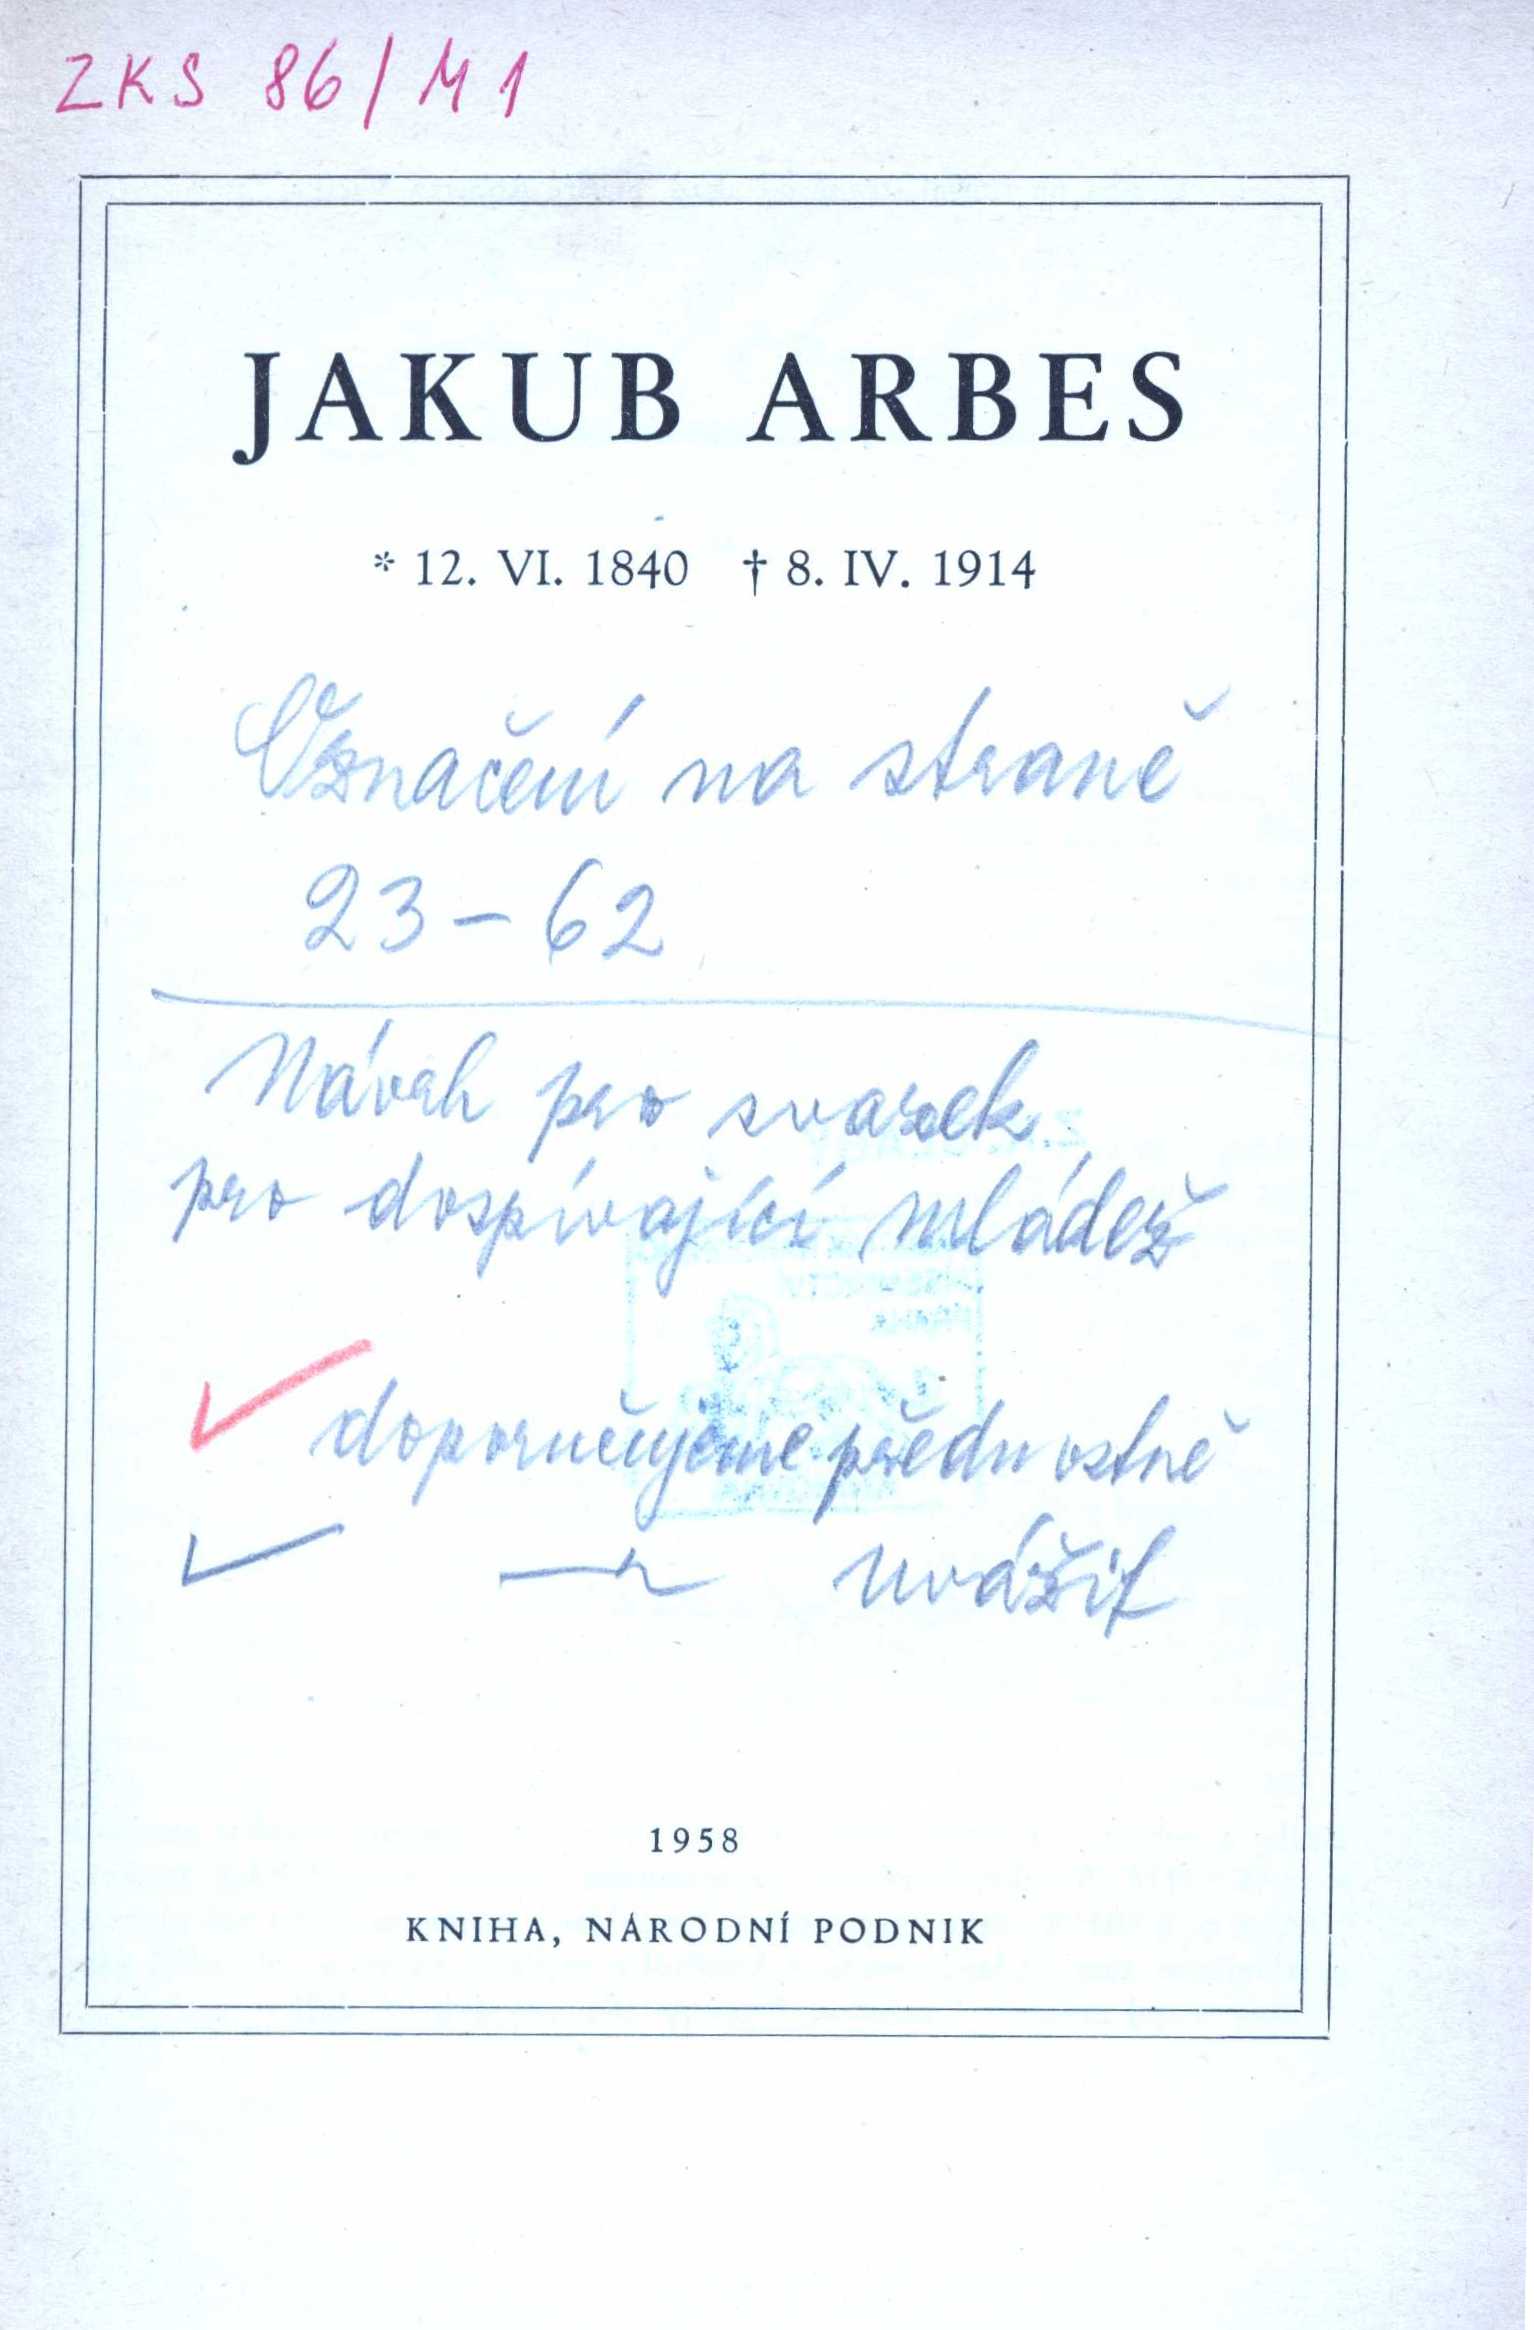 ZKS 86/M1
JAKUB ARBES
* 12. VI. 1840 † 8. IV. 1914
Označení na straně
23-62
Návrh pro svazek
pro dospívající mládež
✓ doporučujeme přednostně
✓ —〃— uvážit
1958
KNIHA, NÁRODNÍ PODNIK